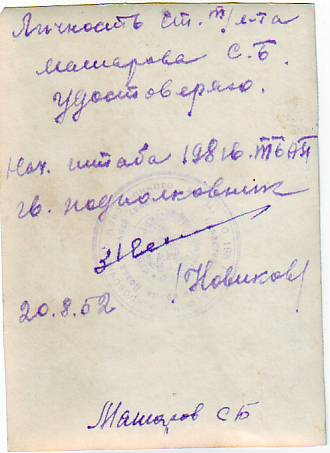 Личность ст. т/л-та
Машарова С.Б.
удостоверяю.
Нач. штаба 198 гв. ТБАП
гв. подполковник
/Новиков/
20.8.52
Машаров СБ